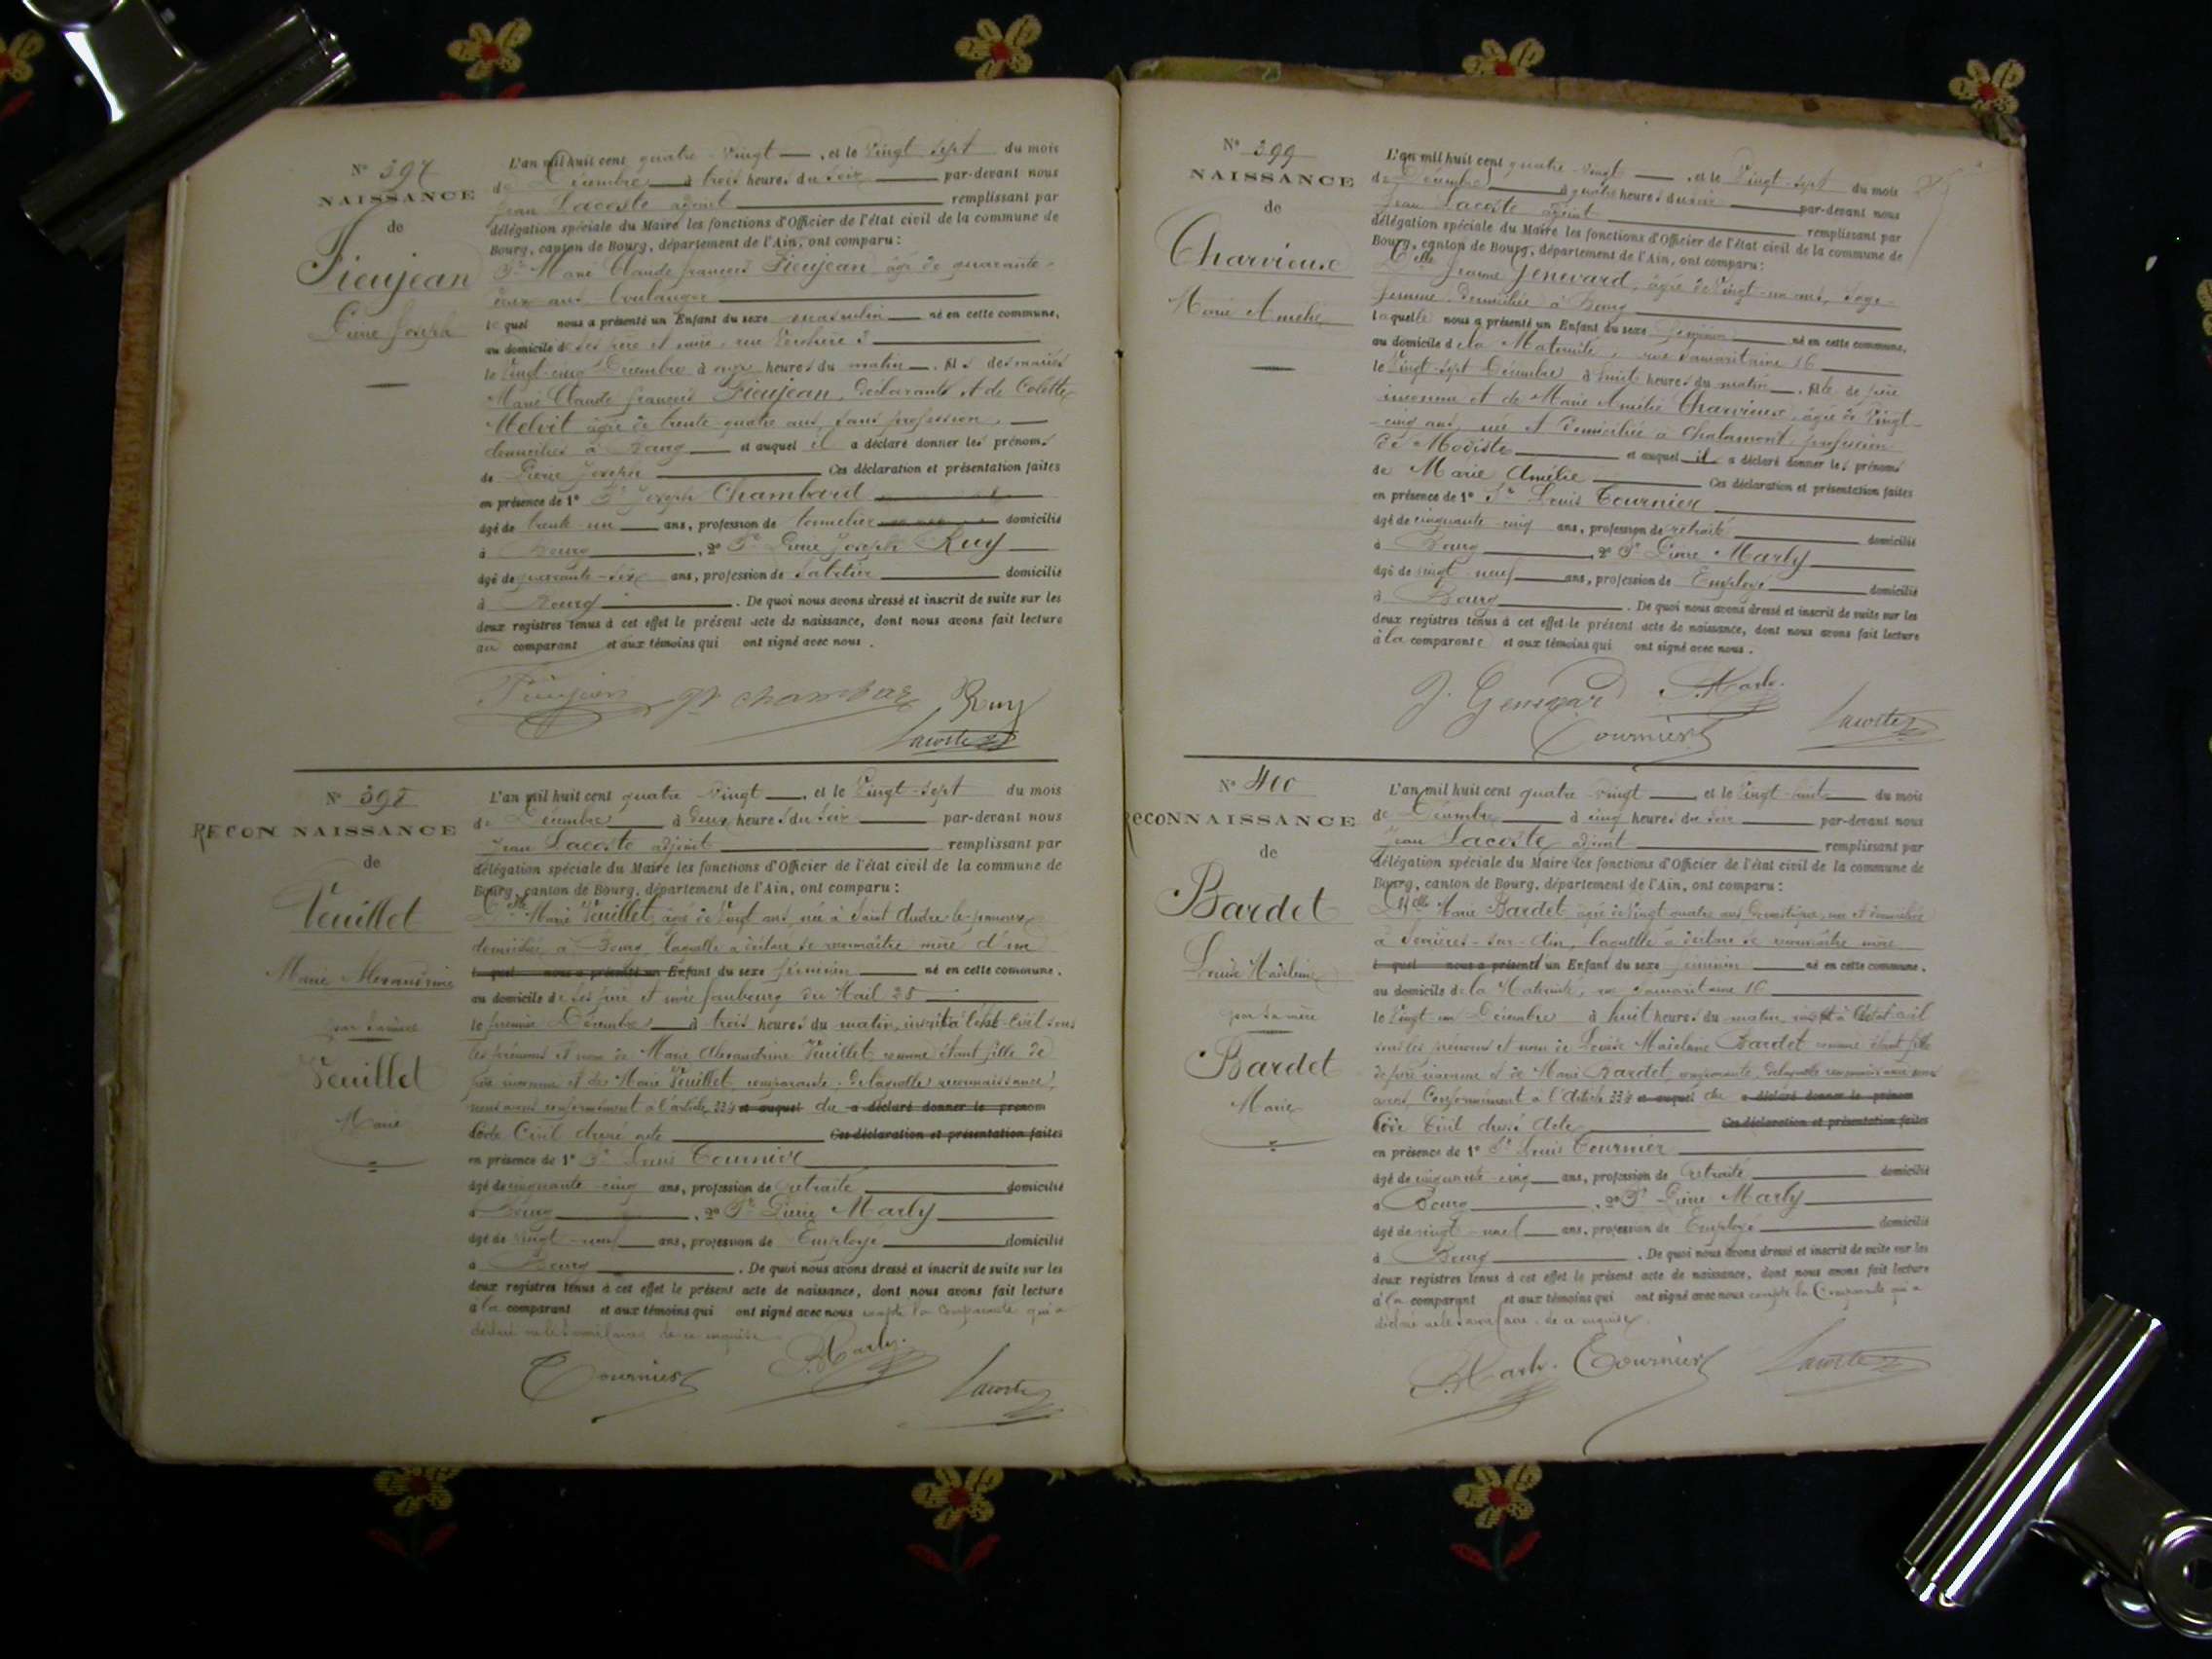 N° 397
NAISSANCE
de
Fieujean
Pierre Joseph
L'an mil huit cent quatre-vingt, et le Vingt-Sept du mois
de Décembre à trois heures du soir par-devant nous
Jean Lacoste adjoint remplissant par
délégation spéciale du Maire les fonctions d'Officier de l'état civil de la commune de
Bourg, canton de Bourg, département de l'Ain, ont comparu :
Sr Marie Claude françois Fieujean, âgé de quarante-
deux ans boulanger
lequel nous a présenté un Enfant du sexe masculin né en cette commune,
au domicile de ses père et mère, rue 3
le Vingt-cinq Décembre à onze heures du matin. fils des mariés
Marie Claude françois Fieujean, déclarant, et de Colette
âgée de trente-quatre ans, sans profession,
domiciliés à Bourg et auquel il a déclaré donner les prénoms
de Pierre Joseph Ces déclaration et présentation faites
en présence de 1° Sr Joseph Chambard
âgé de trente-un ans, profession de tonnelier domicilié
à Bourg, 2° Sr Pierre Joseph Ruy
âgé de quarante-six ans, profession de sabotier domicilié
à Bourg. De quoi nous avons dressé et inscrit de suite sur les
deux registres tenus à cet effet le présent acte de naissance, dont nous avons fait lecture
au comparant et aux témoins qui ont signé avec nous.
Fieujean Ruy
Lacoste
N° 398
RECONNAISSANCE
de
Veuillet
Marie Alexandrine
par sa mère
Veuillet
Marie
L'an mil huit cent quatre-vingt, et le Vingt-Sept du mois
de Décembre à deux heures du soir par-devant nous
Jean Lacoste adjoint remplissant par
délégation spéciale du Maire les fonctions d'Officier de l'état civil de la commune de
Bourg, canton de Bourg, département de l'Ain, ont comparu :
Delle Marie Veuillet, âgée de Vingt ans, née à Saint André-le-panoux
domiciliée à Bourg, laquelle a déclaré se reconnaître mère d'un
lequel nous a présenté un Enfant du sexe féminin né en cette commune.
au domicile de ses père et mère faubourg du Mail 28
le premier Décembre à trois heures du matin, inscrit à l'état-Civil sous
les prénoms et nom de Marie Alexandrine Veuillet, comme étant fille de
père inconnu et de Marie Veuillet, comparante. De laquelle reconnaissance,
nous avons conformément à l'article 334 et auquel du a déclaré donner le prénom
Code Civil dressé acte Ces déclaration et présentation faites
en présence de 1° Sr Louis Tournier
âgé de cinquante-cinq ans, profession de retraité domicilié
à Bourg, 2° Sr Pierre Marly
âgé de vingt-neuf ans, profession de Employé domicilié
à Bourg. De quoi nous avons dressé et inscrit de suite sur les
deux registres tenus à cet effet le présent acte de naissance, dont nous avons fait lecture
à la comparant et aux témoins qui ont signé avec nous excepté la Comparante qui a
déclaré ne le savoir faire de ce enquise
Tournier P. Marly.
Lacoste
N° 399
NAISSANCE
de
Charvieux
Marie Amélie
L'an mil huit cent quatre-vingt, et le Vingt-Sept du mois
de Décembre à quatre heures du soir par-devant nous
Jean Lacoste adjoint remplissant par
délégation spéciale du Maire les fonctions d'Officier de l'état civil de la commune de
Bourg, canton de Bourg, département de l'Ain, ont comparu :
Delle Jeanne Jenevard, âgée de Vingt-un ans, sage-
femme, domiciliée à Bourg
laquelle nous a présenté un Enfant du sexe féminin né en cette commune,
au domicile de la Maternité, rue Samaritaine 16
le Vingt-Sept Décembre à huit heures du matin. fille de père
inconnu et de Marie Amélie Charvieux, âgée de Vingt-
cinq ans, née et domiciliée à Chalamont, profession
de Modiste et auquel il a déclaré donner les prénoms
de Marie Amélie Ces déclaration et présentation faites
en présence de 1° Sr Louis Tournier
âgé de cinquante-cinq ans, profession de retraité domicilié
à Bourg, 2° Sr Pierre Marly
âgé de vingt-neuf ans, profession de Employé domicilié
à Bourg. De quoi nous avons dressé et inscrit de suite sur les
deux registres tenus à cet effet le présent acte de naissance, dont nous avons fait lecture
à la comparante et aux témoins qui ont signé avec nous.
J. Genevard P. Marly
Tournier Lacoste
N° 400
RECONNAISSANCE
de
Bardet
Louise Madeleine
par sa mère
Bardet
Marie
L'an mil huit cent quatre-vingt, et le Vingt-huit du mois
de Décembre à cinq heures du soir par-devant nous
Jean Lacoste adjoint remplissant par
délégation spéciale du Maire les fonctions d'Officier de l'état civil de la commune de
Bourg, canton de Bourg, département de l'Ain, ont comparu :
Delle Marie Bardet, âgée de Vingt-quatre ans, domestique, née et domiciliée
à Serrières-sur-Ain, laquelle a déclaré se reconnaître mère
lequel nous a présenté un Enfant du sexe féminin né en cette commune.
au domicile de la Maternité, rue Samaritaine 16
le Vingt-un Décembre à huit heures du matin, inscrit à l'état civil
sous les prénoms et nom de Louise Madelaine Bardet comme étant fille
de père inconnu et de Marie Bardet, comparante, de laquelle reconnaissance nous
avons Conformément à l'Article 334 et auquel du a déclaré donner le prénom
Code Civil dressé Acte Ces déclaration et présentation faites
en présence de 1° Sr Louis Tournier
âgé de cinquante-cinq ans, profession de retraité domicilié
à Bourg, 2° Sr Pierre Marly
âgé de vingt-neuf ans, profession de Employé domicilié
à Bourg. De quoi nous avons dressé et inscrit de suite sur les
deux registres tenus à cet effet le présent acte de naissance, dont nous avons fait lecture
à la comparant et aux témoins qui ont signé avec nous excepté la Comparante qui a
déclaré ne le savoir faire de ce enquise.
P. Marly. Tournier Lacoste